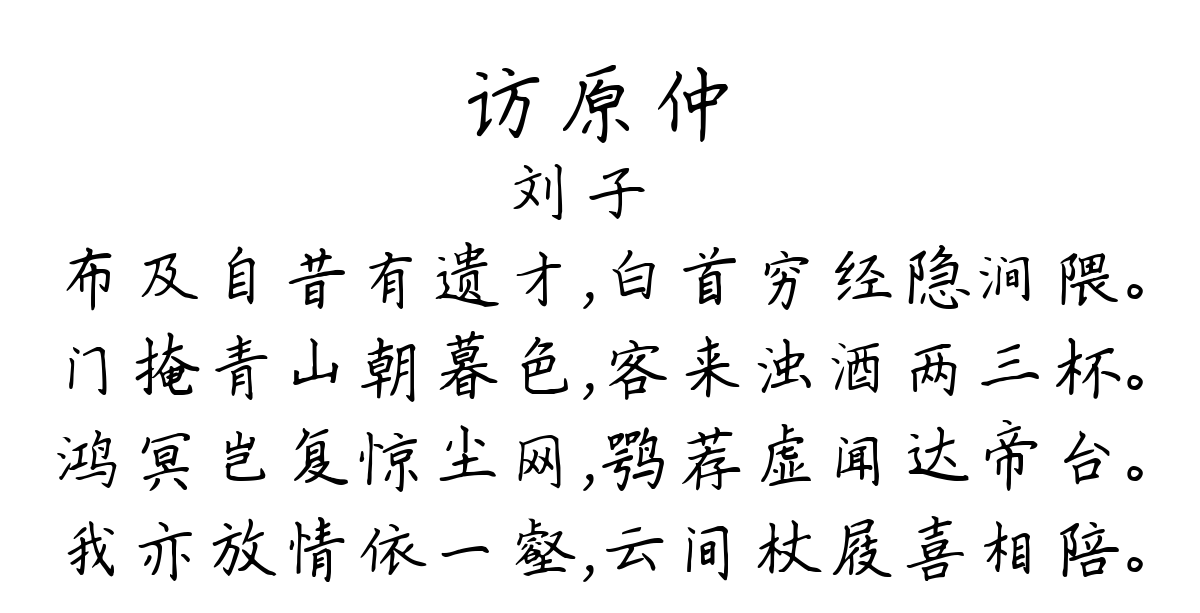 访原仲
刘子
布及自昔有遗才,白首穷经隐涧隈。
门掩青山朝暮色,客来浊酒两三杯。
鸿冥岂复惊尘网,鹗荐虚闻达帝台。
我亦放情依一壑,云间杖屐喜相陪。